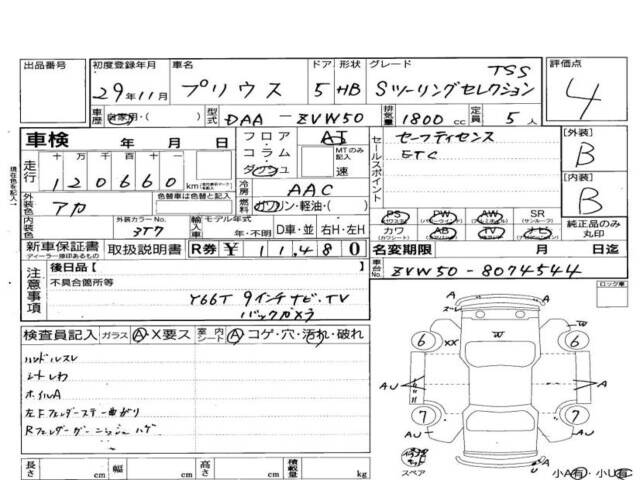 出品番号 初度登録年月 車名 ドア 形状 グレード TSS 評価点
29年11月 プリウス 5 HB Sツーリングセレクション 4
車歴 自家用・( ) 型式 DAA-ZVW50 排気量 1800cc 定員 5人
車検 年 月 日 フロア AT セールスポイント セーフティセンス [外装]
コラム MTのみ記入 ETC B
走行 十 万 千 百 十 一 ダッシュ 速
120660km 冷房 AAC [内装]
現在色を記入→ 外装色 アカ 色替車は色替と記入 燃料 ガソリン・軽油・( ) B
PS PW AW SR
内装色 外装カラーNo. 3T7 輸入車 モデル年式 年・不明 D車・並 右H・左H カワ AB TV ナビ 純正品のみ丸印
新車保証書 取扱説明書 R券 ¥ 11,480 名変期限 月 日迄
ディーラー捺印あるもの
注意事項 後日品「 」 車台No. ZVW50-8074544
不具合箇所等 ロック車
Y66T 9インチナビ・TV
バックカメラ
検査員記入 ガラス A・X要ス 室内シート A・コゲ・穴・汚れ・破れ
ハンドルスレ
シートしわ
ホイルA
左Fフェンダーステー曲がり
Rフェンダーガーニッシュハゲ
A
A
W
6 XX 6
AU A
7 7
AU AU
U
スペア
長さ cm 幅 cm 高さ cm 積載量 kg 小A有・小U有